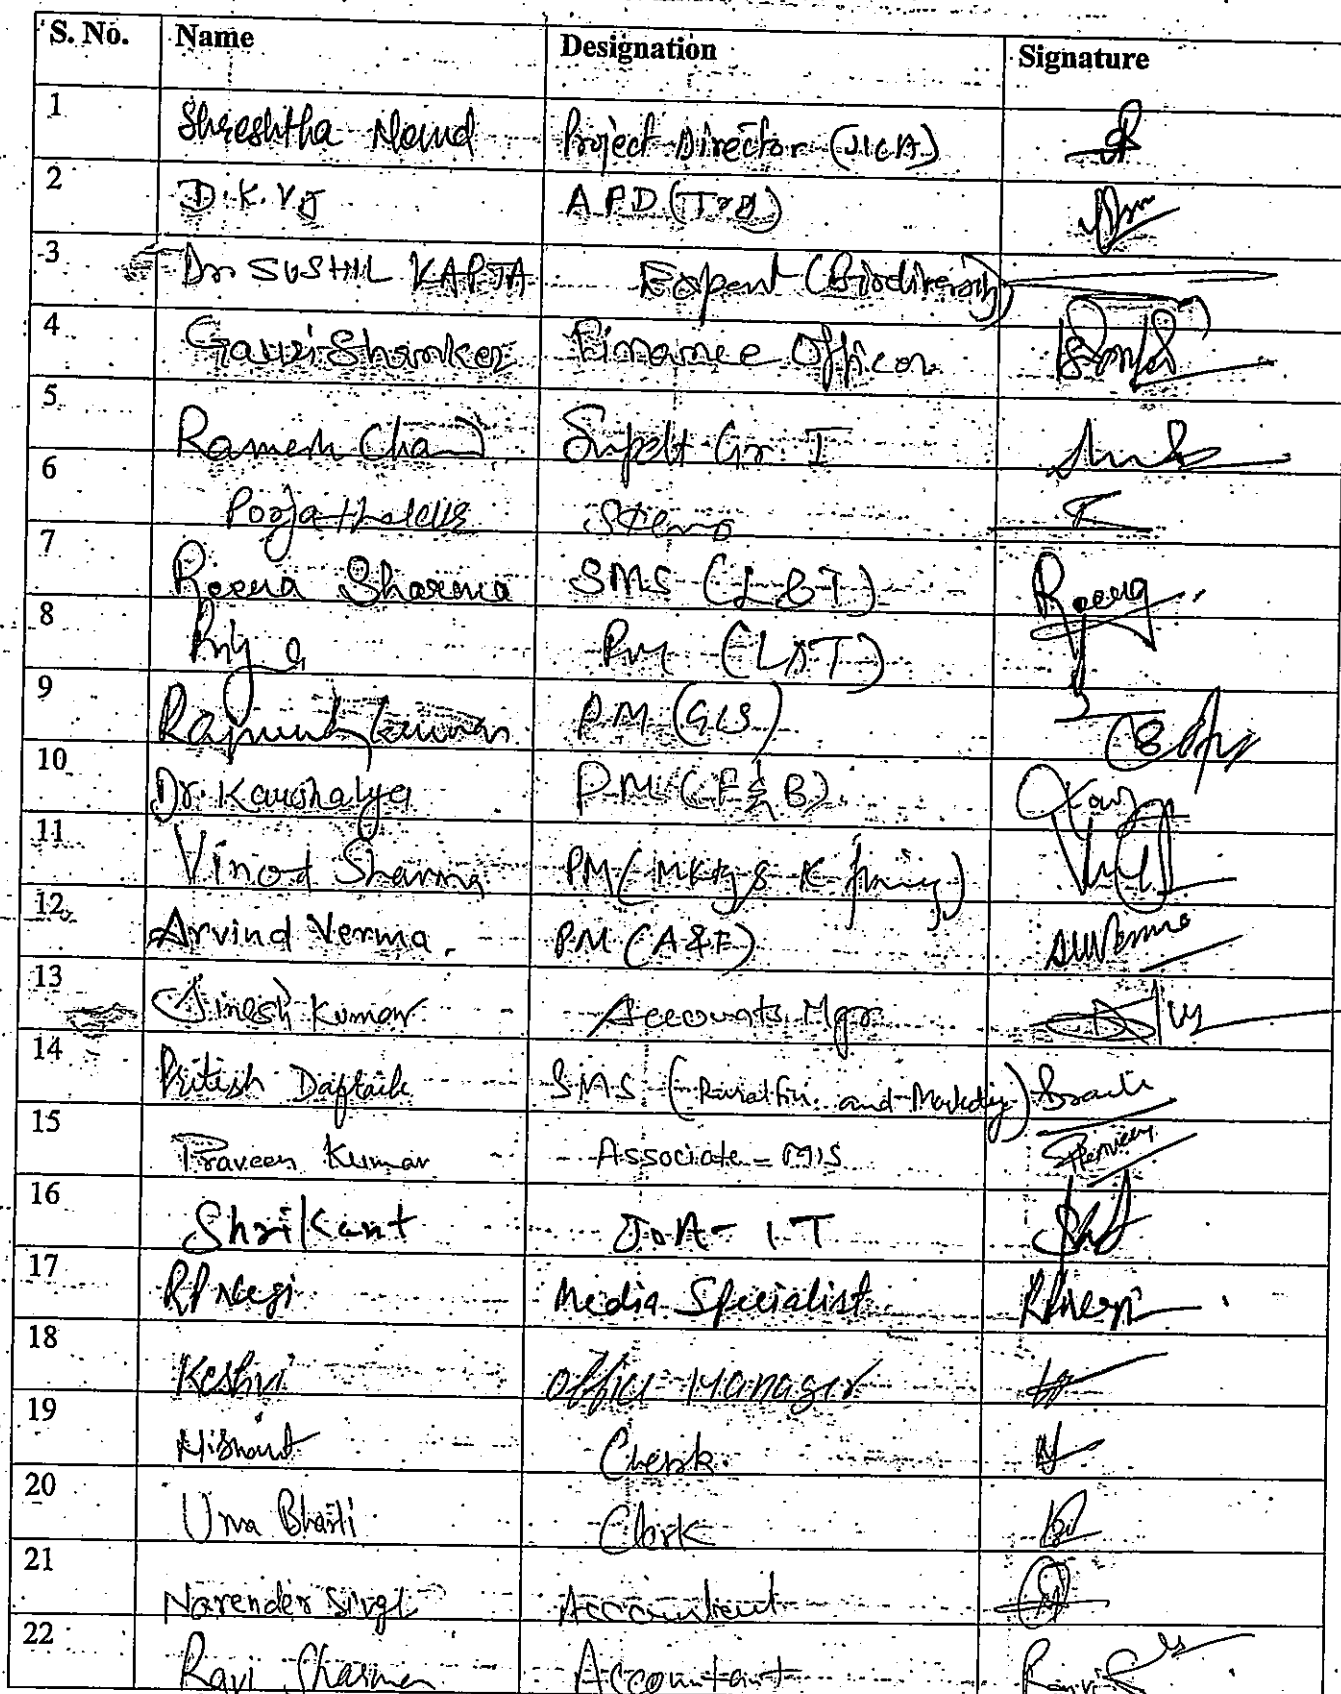 S. No. Name Designation Signature
1 Shreshtha Nand Project Director (JICA)
2 D.K. Vij APD (Trg)
3 Dr SUSHIL KAPTA Expert (Biodiversity)
4 Gauri Shanker Finance Officer
5 Ramesh Chand Supdt Gr. I
6 Pooja Steno
7 Reena Sharma SMS (L&T) Reena
8 Priya PM (L&T)
9 Kumar PM (GIS)
10 Dr. Kaushalya PM (F&B)
11 Vinod Sharma PM (Mktg &
12 Arvind Verma. PM (A&F)
13 Jinesh Kumar Accounts Mgr
14 Pritish SMS (Rural Fin. and Marketing)
15 Praveen Kumar Associate - MIS Praveen
16 Shrikant J.O.A - IT
17 RP Negi Media Specialist RPNegi
18 Keshvi Office Manager
19 Nishant Clerk
20 Uma Bharti Clerk
21 Narender Singh Accountant
22 Ravi Sharma Accountant Ravi